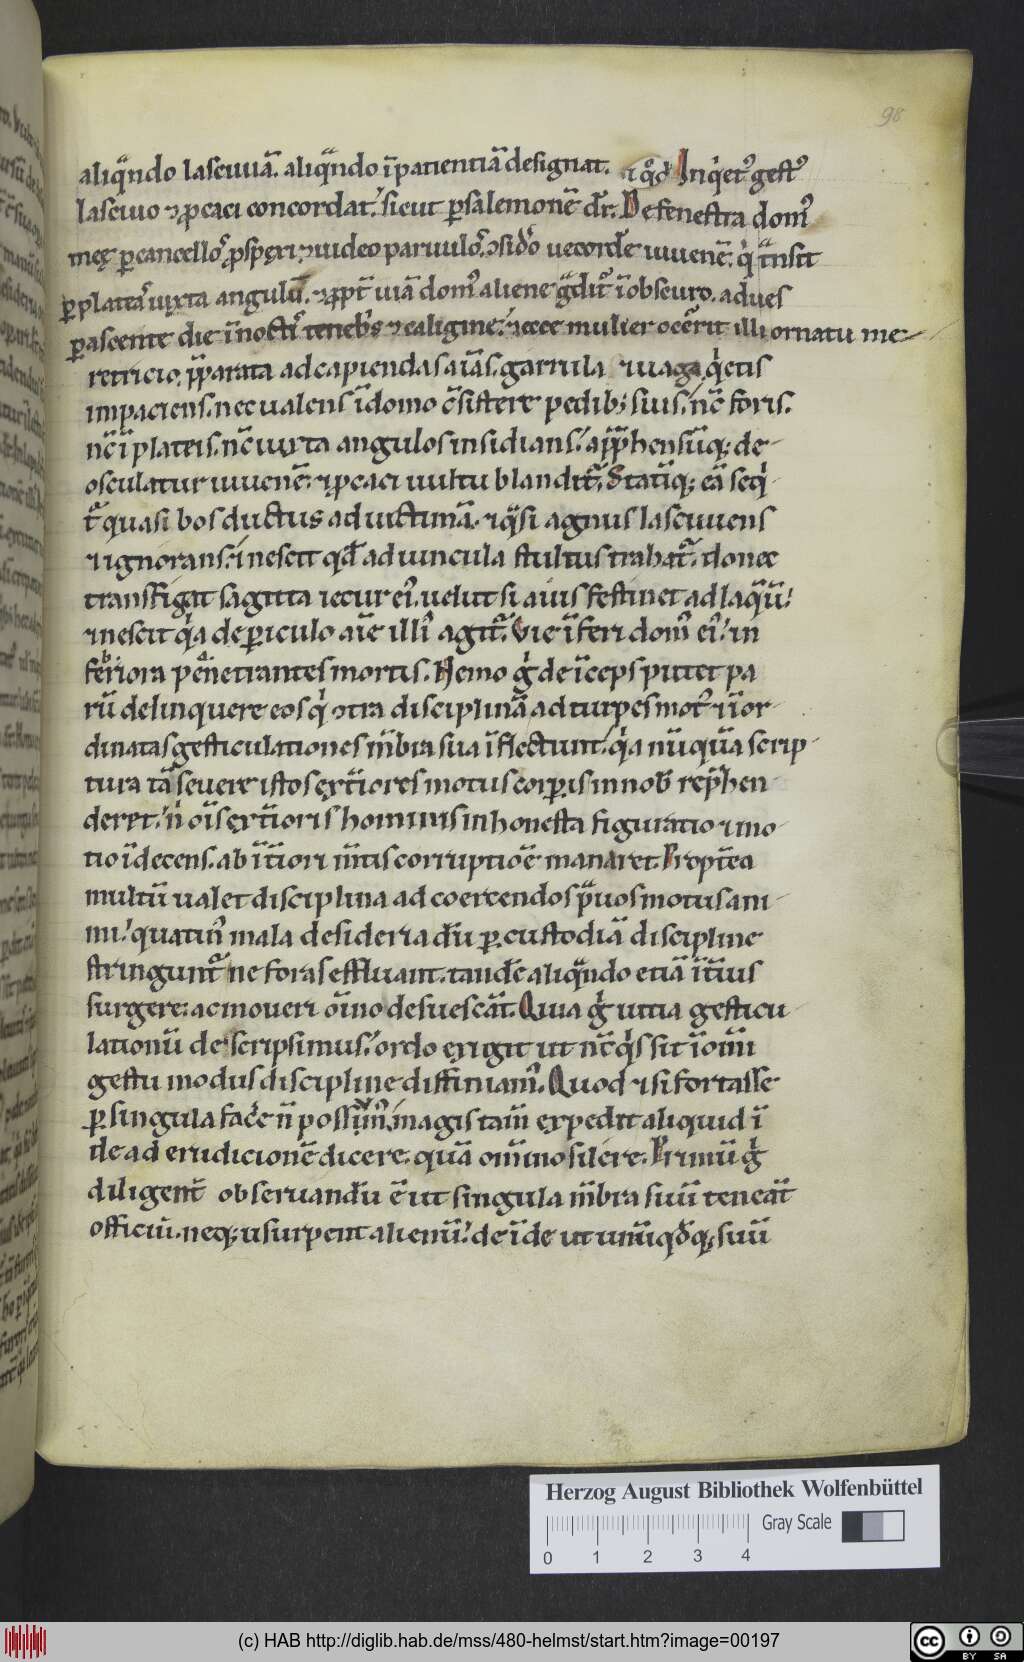 98
aliq̄ndo lasciuiā. aliq̄ndo īpatientiā designat. Inq̇et᷒ gest᷒
lasciuo ⁊ ꝓcaci concordat. sicut ꝑ salemonē dr̄. De fenestra dom᷒
męę ꝑ cancello᷒ ꝓspexi. ⁊ uideo paruulo᷒. ↄsid̓o uecordē iuuenē. q̇ t̄nsit
ꝑ platea᷒ iuxta angulū. ⁊ ꝓpt̄ uiā dom᷒ aliene g̃dit᷒ ī obscuro. aduesꝑascente die ī nocti᷒ teneb̓s ⁊ caligine. ⁊ ecce mulier ocēr̄it illi ornatu me-
retricio. p̄parata ad capiendas aīas. garrula ⁊ uaga q̇etis
impaciens. nec ualens ī domo c̄sistere pedib; suis. nc̄ foris.
nc̄ ī plateis. nc̄ iuxta angulos insidians. app̄hensūq; de-
osculatur iuuenē. ⁊ ꝓcaci uultu blandit᷒. Statīq; eā seq̇-
t᷒ quasi bos ductus ad uictimā. ⁊ q̄si agnus lasciuiens
⁊ ignorans. ⁊ nescit qd̄ ad uincula stultus trahat᷒. donec
transfigat sagitta iecur ei᷒. uelut si auis festinet ad laq̄ū.
⁊ nescit q̇a de ꝑiculo aīe illi᷒ agit᷒. Vie īferi dom᷒ ei᷒. in
feriora penetrantes mortis. Nemo g̊ deīceps putet pa
rū delinquere eos q̇ ↄtra disciplinā ad turpes mot᷒ ⁊ īor-
dinatas gesticulationes m̄bra sua īflectunt. q̇a nūquā scrip-
tura tā seuere istos ext̄iores motus corꝑis in nob̄ rep̄hen
deret. n̄ oīs ext̄ioris hominis inhonesta figuratio ⁊ mo-
tio īdecens. ab īt̄iori m̄tis corruptiōe manaret. Propt̄ea
multū ualet disciplina ad coercendos p̄uos motus ani-
mi. quatin᷒ mala desideria dū ꝑ custodiā discipline
stringunt᷒ ne foras effluant. tandē aliq̄ndo etiā īt̄ius
surgere. ac moueri oīno desuescāt. Quia g̊ uitia gesticu-
lationū descripsimus. ordo exigit ut nc̄ q̇s sit ī omī
gestu modus discipline diffiniam᷒. Quod ⁊ si fortasse
ꝑ singula facē n̄ possim᷒. magis tam̄ expedit aliquid ī
de ad erudicionē dicere. quā omīno silere. Primū g̊
diligent̄ obseruandū ē ut singula m̄bra suū teneāt
officiū. neq; usurpent alienū. deīde ut unūqd̄q; suū
Herzog August Bibliothek Wolfenbüttel
Gray Scale
0 1 2 3 4
(c) HAB http://diglib.hab.de/mss/480-helmst/start.htm?image=00197
cc BY SA